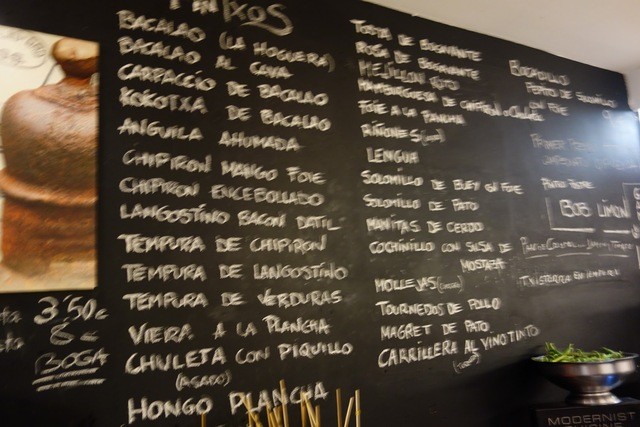 PINTXOS
BACALAO (LA HOGUERA)
BACALAO AL CAVA
CARPACCIO DE BACALAO
KOKOTXA DE BACALAO
ANGUILA AHUMADA
CHIPIRON MANGO FOIE
CHIPIRON ENCEBOLLADO
LANGOSTINO BACON DATIL
TEMPURA DE CHIPIRON
TEMPURA DE LANGOSTINO
TEMPURA DE VERDURAS
VIEIRA A LA PLANCHA
CHULETA CON PIQUILLO
(ASADO)
HONGO PLANCHA
3'50€
8€
BOGA
TOSTA DE BOGAVANTE
ROSA DE BOGAVANTE
MEJILLON
HAMBURGUESA DE CHIPIRON o
FOIE A LA PLANCHA
RIÑONES
LENGUA
SOLOMILLO DE BUEY CON FOIE
SOLOMILLO DE PATO
MANITAS DE CERDO
COCHINILLO CON SALSA DE
MOSTAZA
MOLLEJAS
TOURNEDOS DE POLLO
MAGRET DE PATO
CARRILLERA AL VINO TINTO
BOCADILLO
PEPITO DE SOLOMILLO
CON FOIE
BOB LIMON
MODERNIST
CUISINE